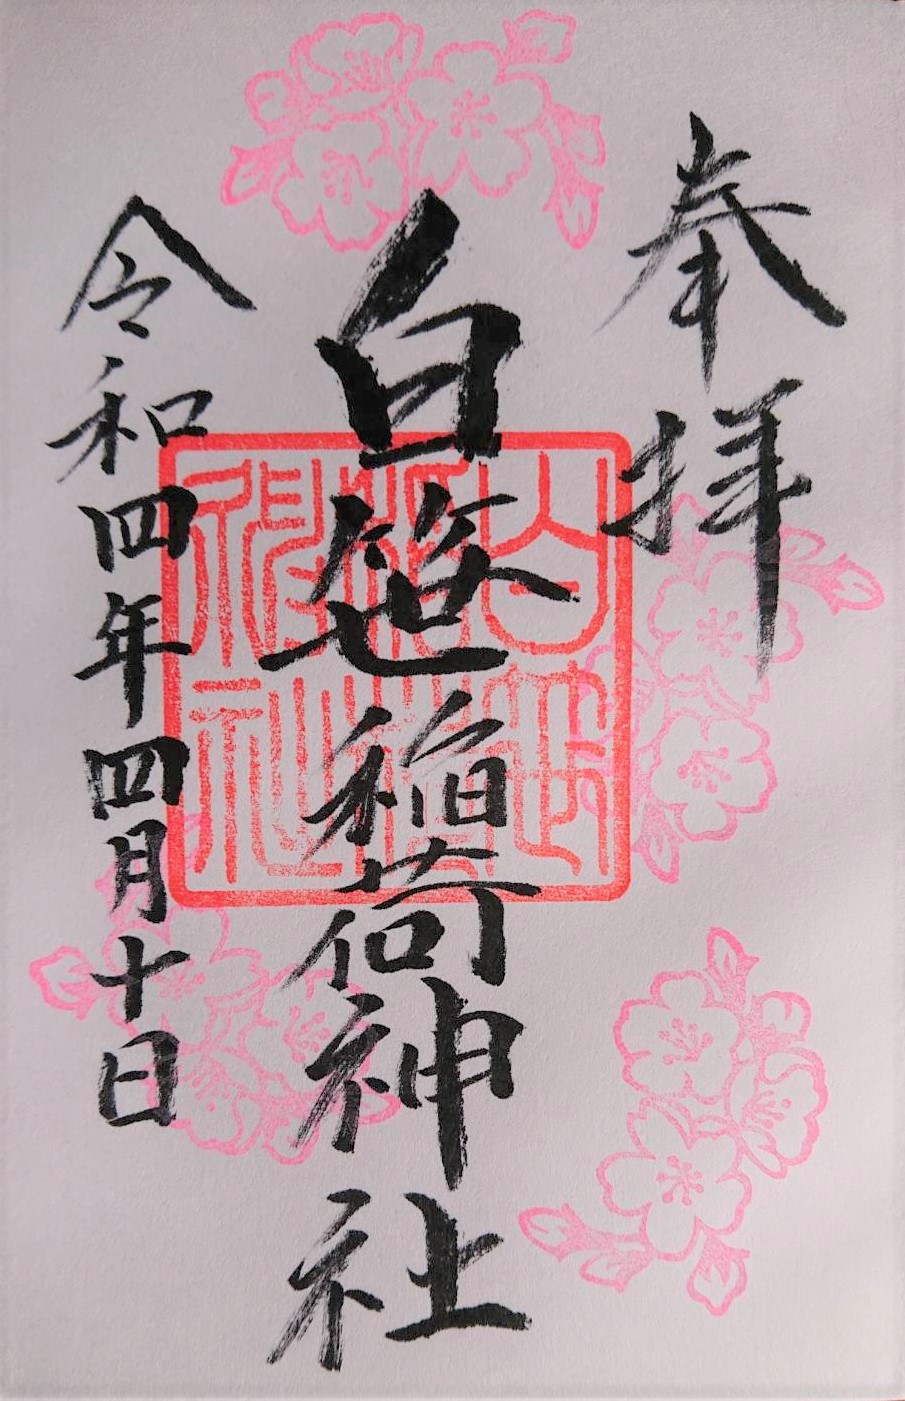 奉拝
白笹稲荷神社
令和四年四月十日